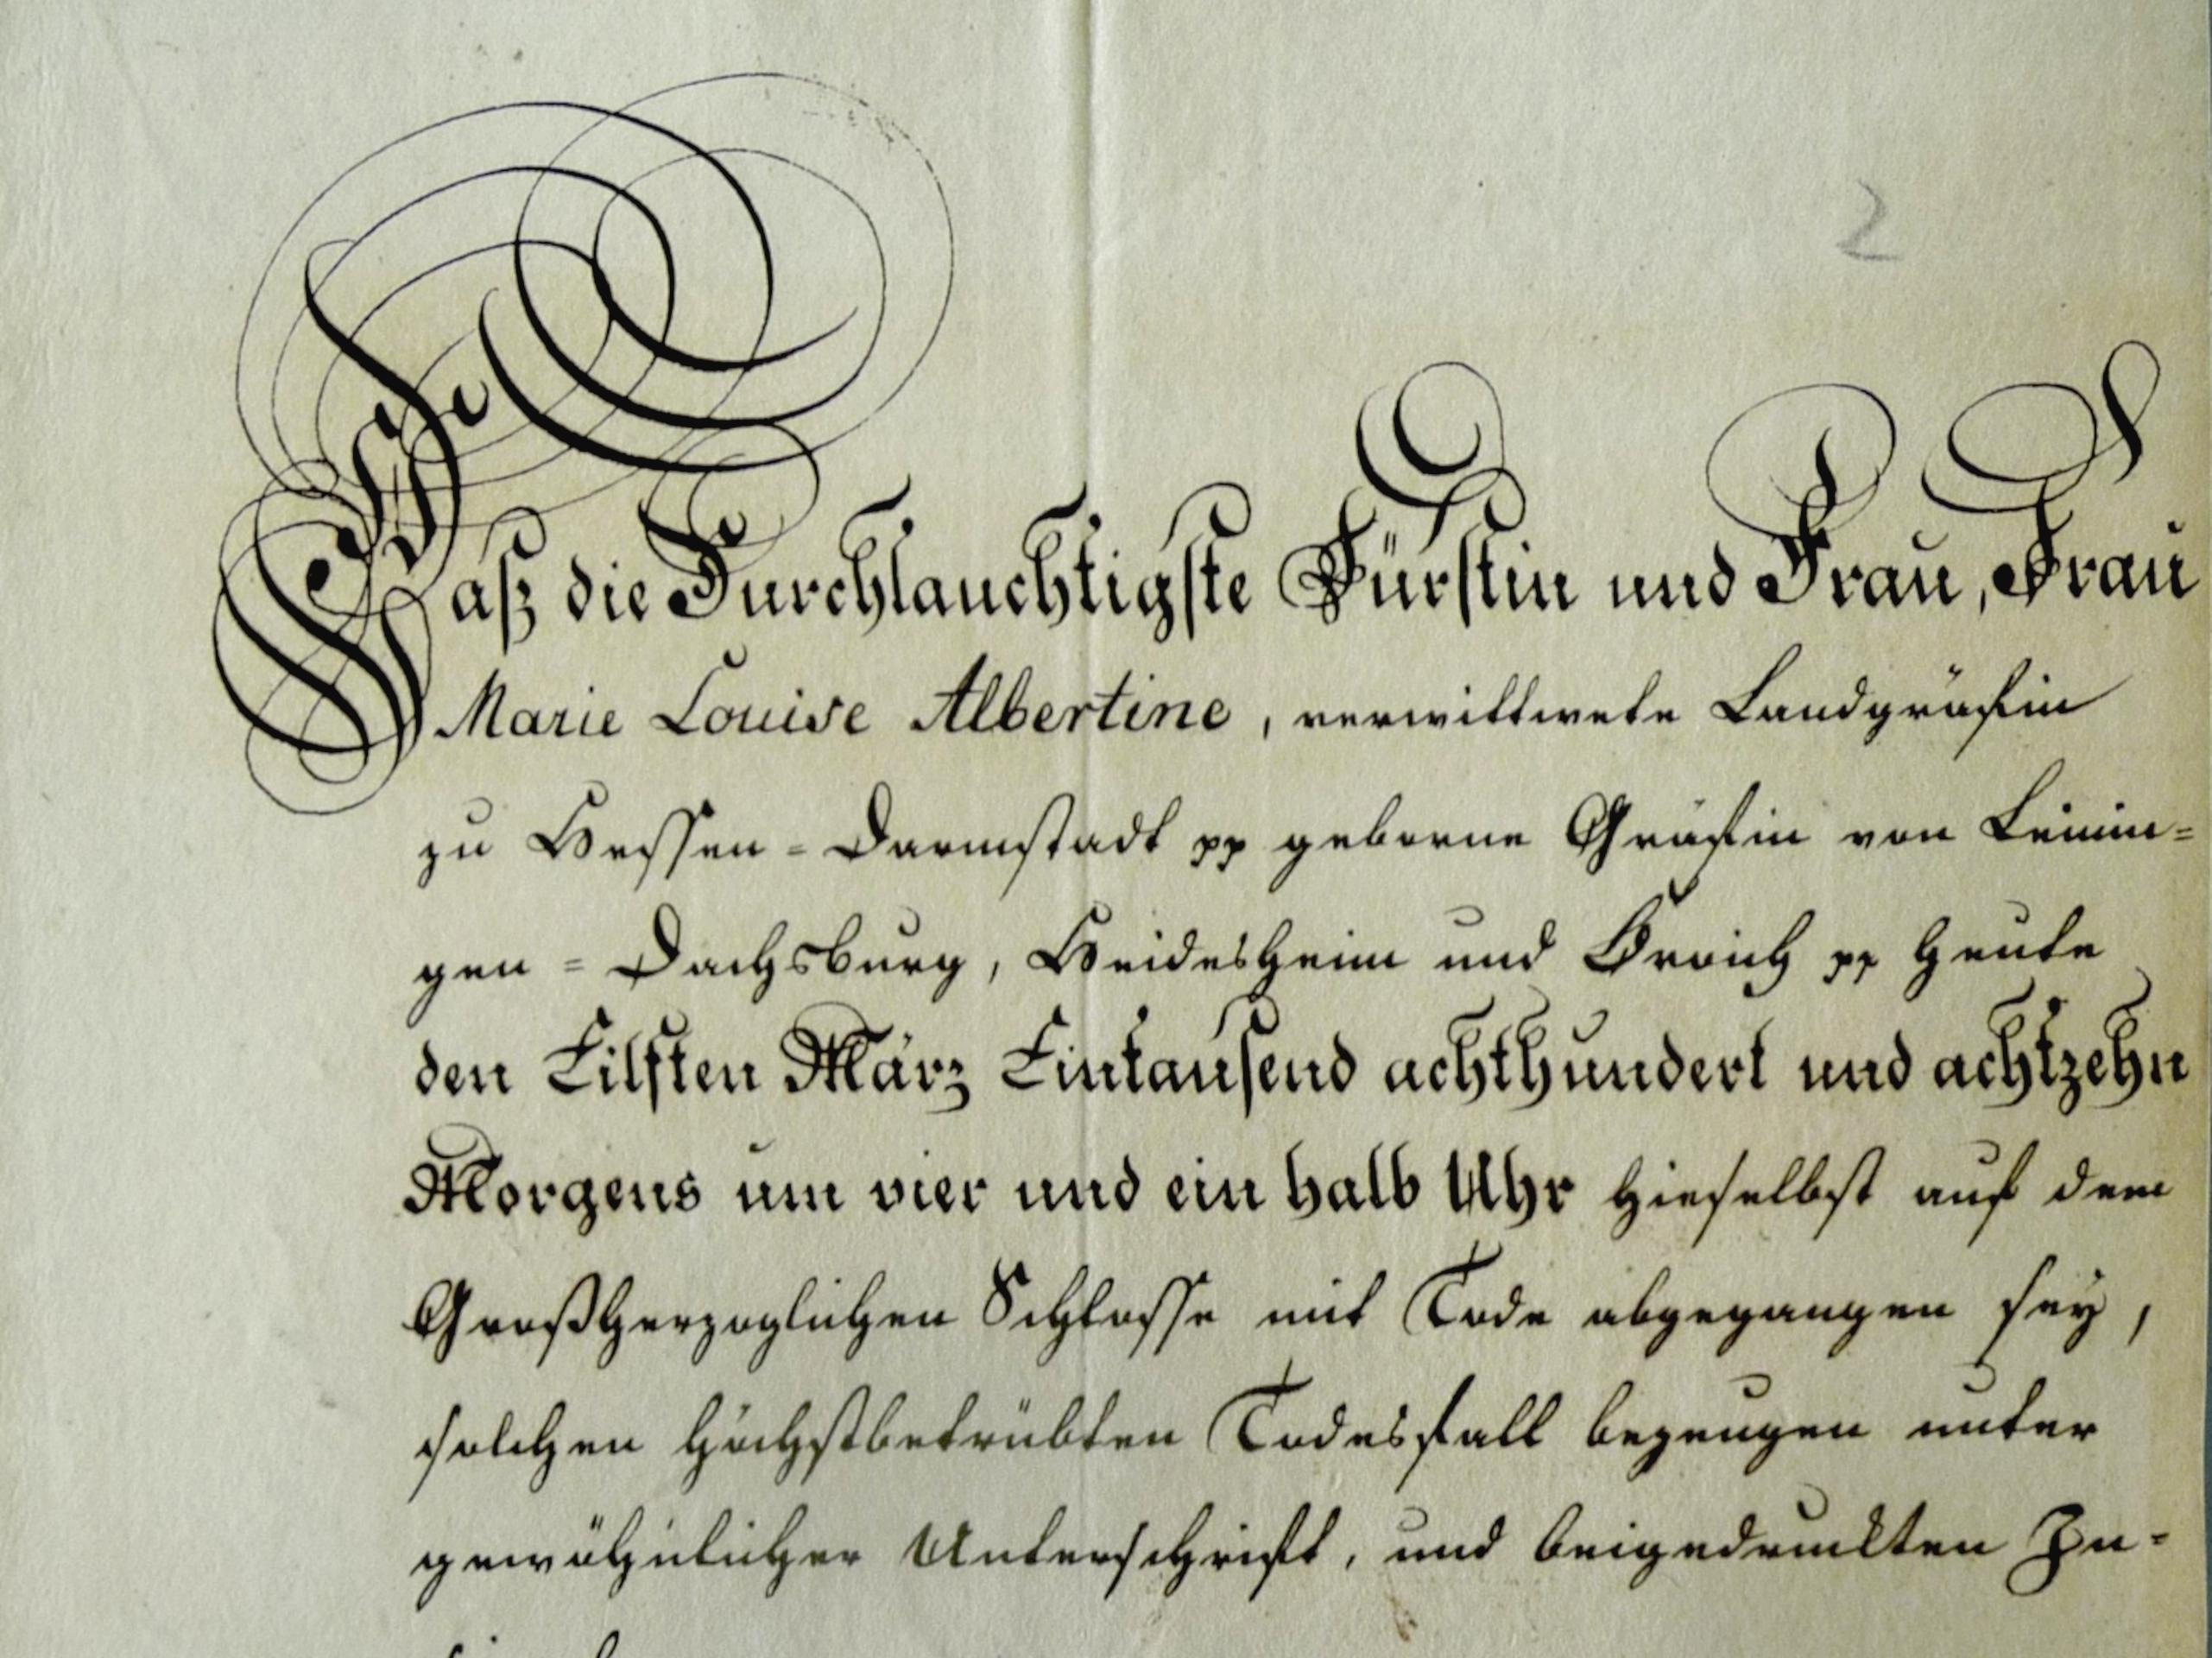 2
Daß die Durchlauchtigste Fürstin und Frau, Frau
Marie Louise Albertine, verwittwete Landgräfin
zu Hessen=Darmstadt pp geborne Gräfin von Leinin=
gen=Dachsburg, Heidesheim und Broich pp heute
den Eilften März Eintausend achthundert und achtzehn
Morgens um vier und ein halb Uhr hieselbst auf dem
Großherzoglichen Schlosse mit Tode abgegangen sey,
solchen höchstbetrübten Todesfall bezeugen unter
gewöhnlicher Unterschrift, und beigedruckten In=